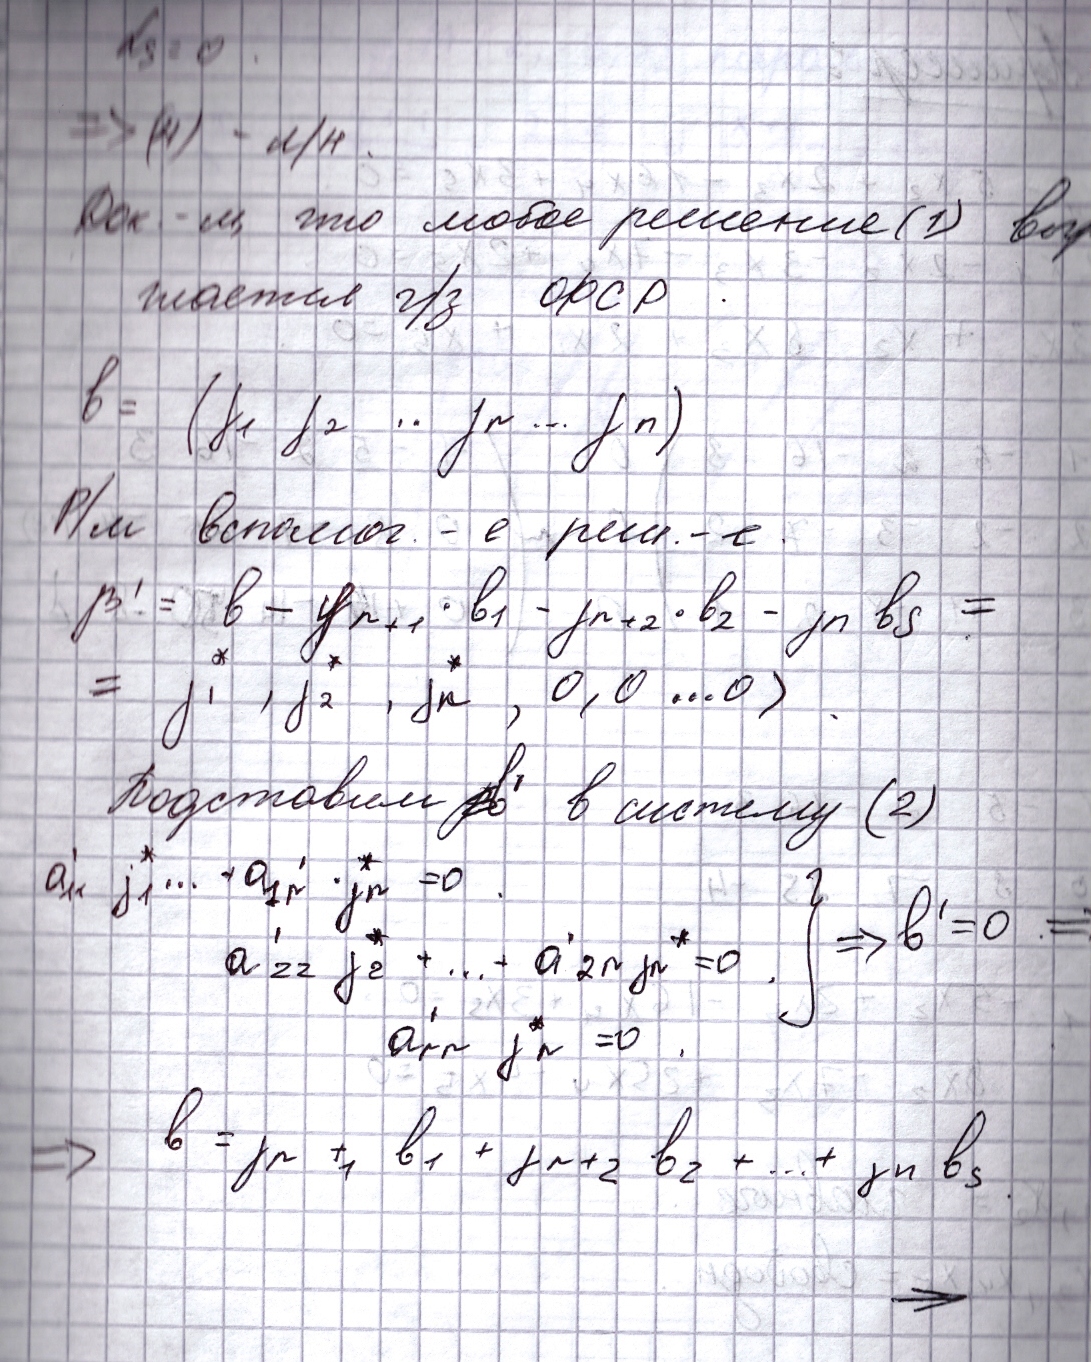 αs = 0 .
=> (4) - л/н .
Док - м, что любое решение (1) выр
жается ч/з ОФСР .
b = (j1 j2 .. jr ... jn)
Р/м вспомог. - е реш. - е .
β' = b - jr+1 · b1 - jr+2 · b2 - jn bs =
= j1* , j2* , jr* , 0, 0 ... 0) .
Подставим b' в систему (2)
a'11 j1* ... + a'1r · jr* = 0 .
a'22 j2* + ... + a'2r jr* = 0 . } => b' = 0 =>
a'rr jr* = 0 .
=> b = jr+1 b1 + jr+2 b2 + ... + jn bs .
→